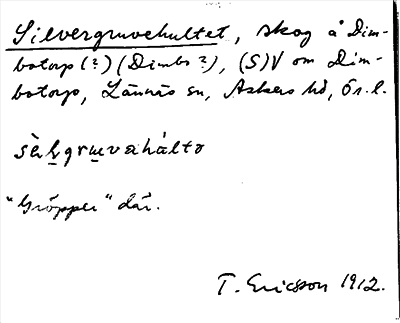 Silvergruvehultet, skog å Dim-
botorp (?) (Dimbo?), (S)V om Dim-
botorp, Lännäs sn, Askers hd, Ör. l.
"Gröpper" där.
T. Ericsson 1912.